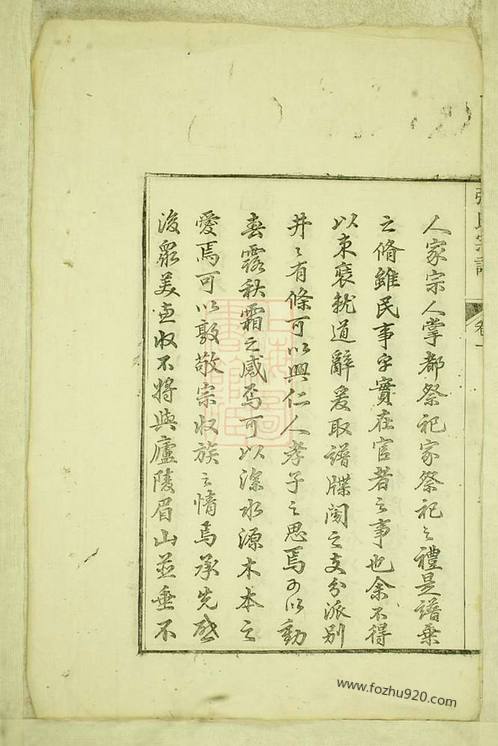 人家宗人掌都祭祀家祭祀之禮是譜乗
之脩雖民事乎實在官者之事也余不得
以束裝就道辭爰取譜牒閱之支分派別
井〻有條可以興仁人孝子之思焉可以動
春露秋霜之感焉可以深水源木本之
愛焉可以敦敬宗收族之情焉承先啟
後衆美並收不將與廬陵眉山並垂不
張氏宗譜
卷一
www.fozhu920.com